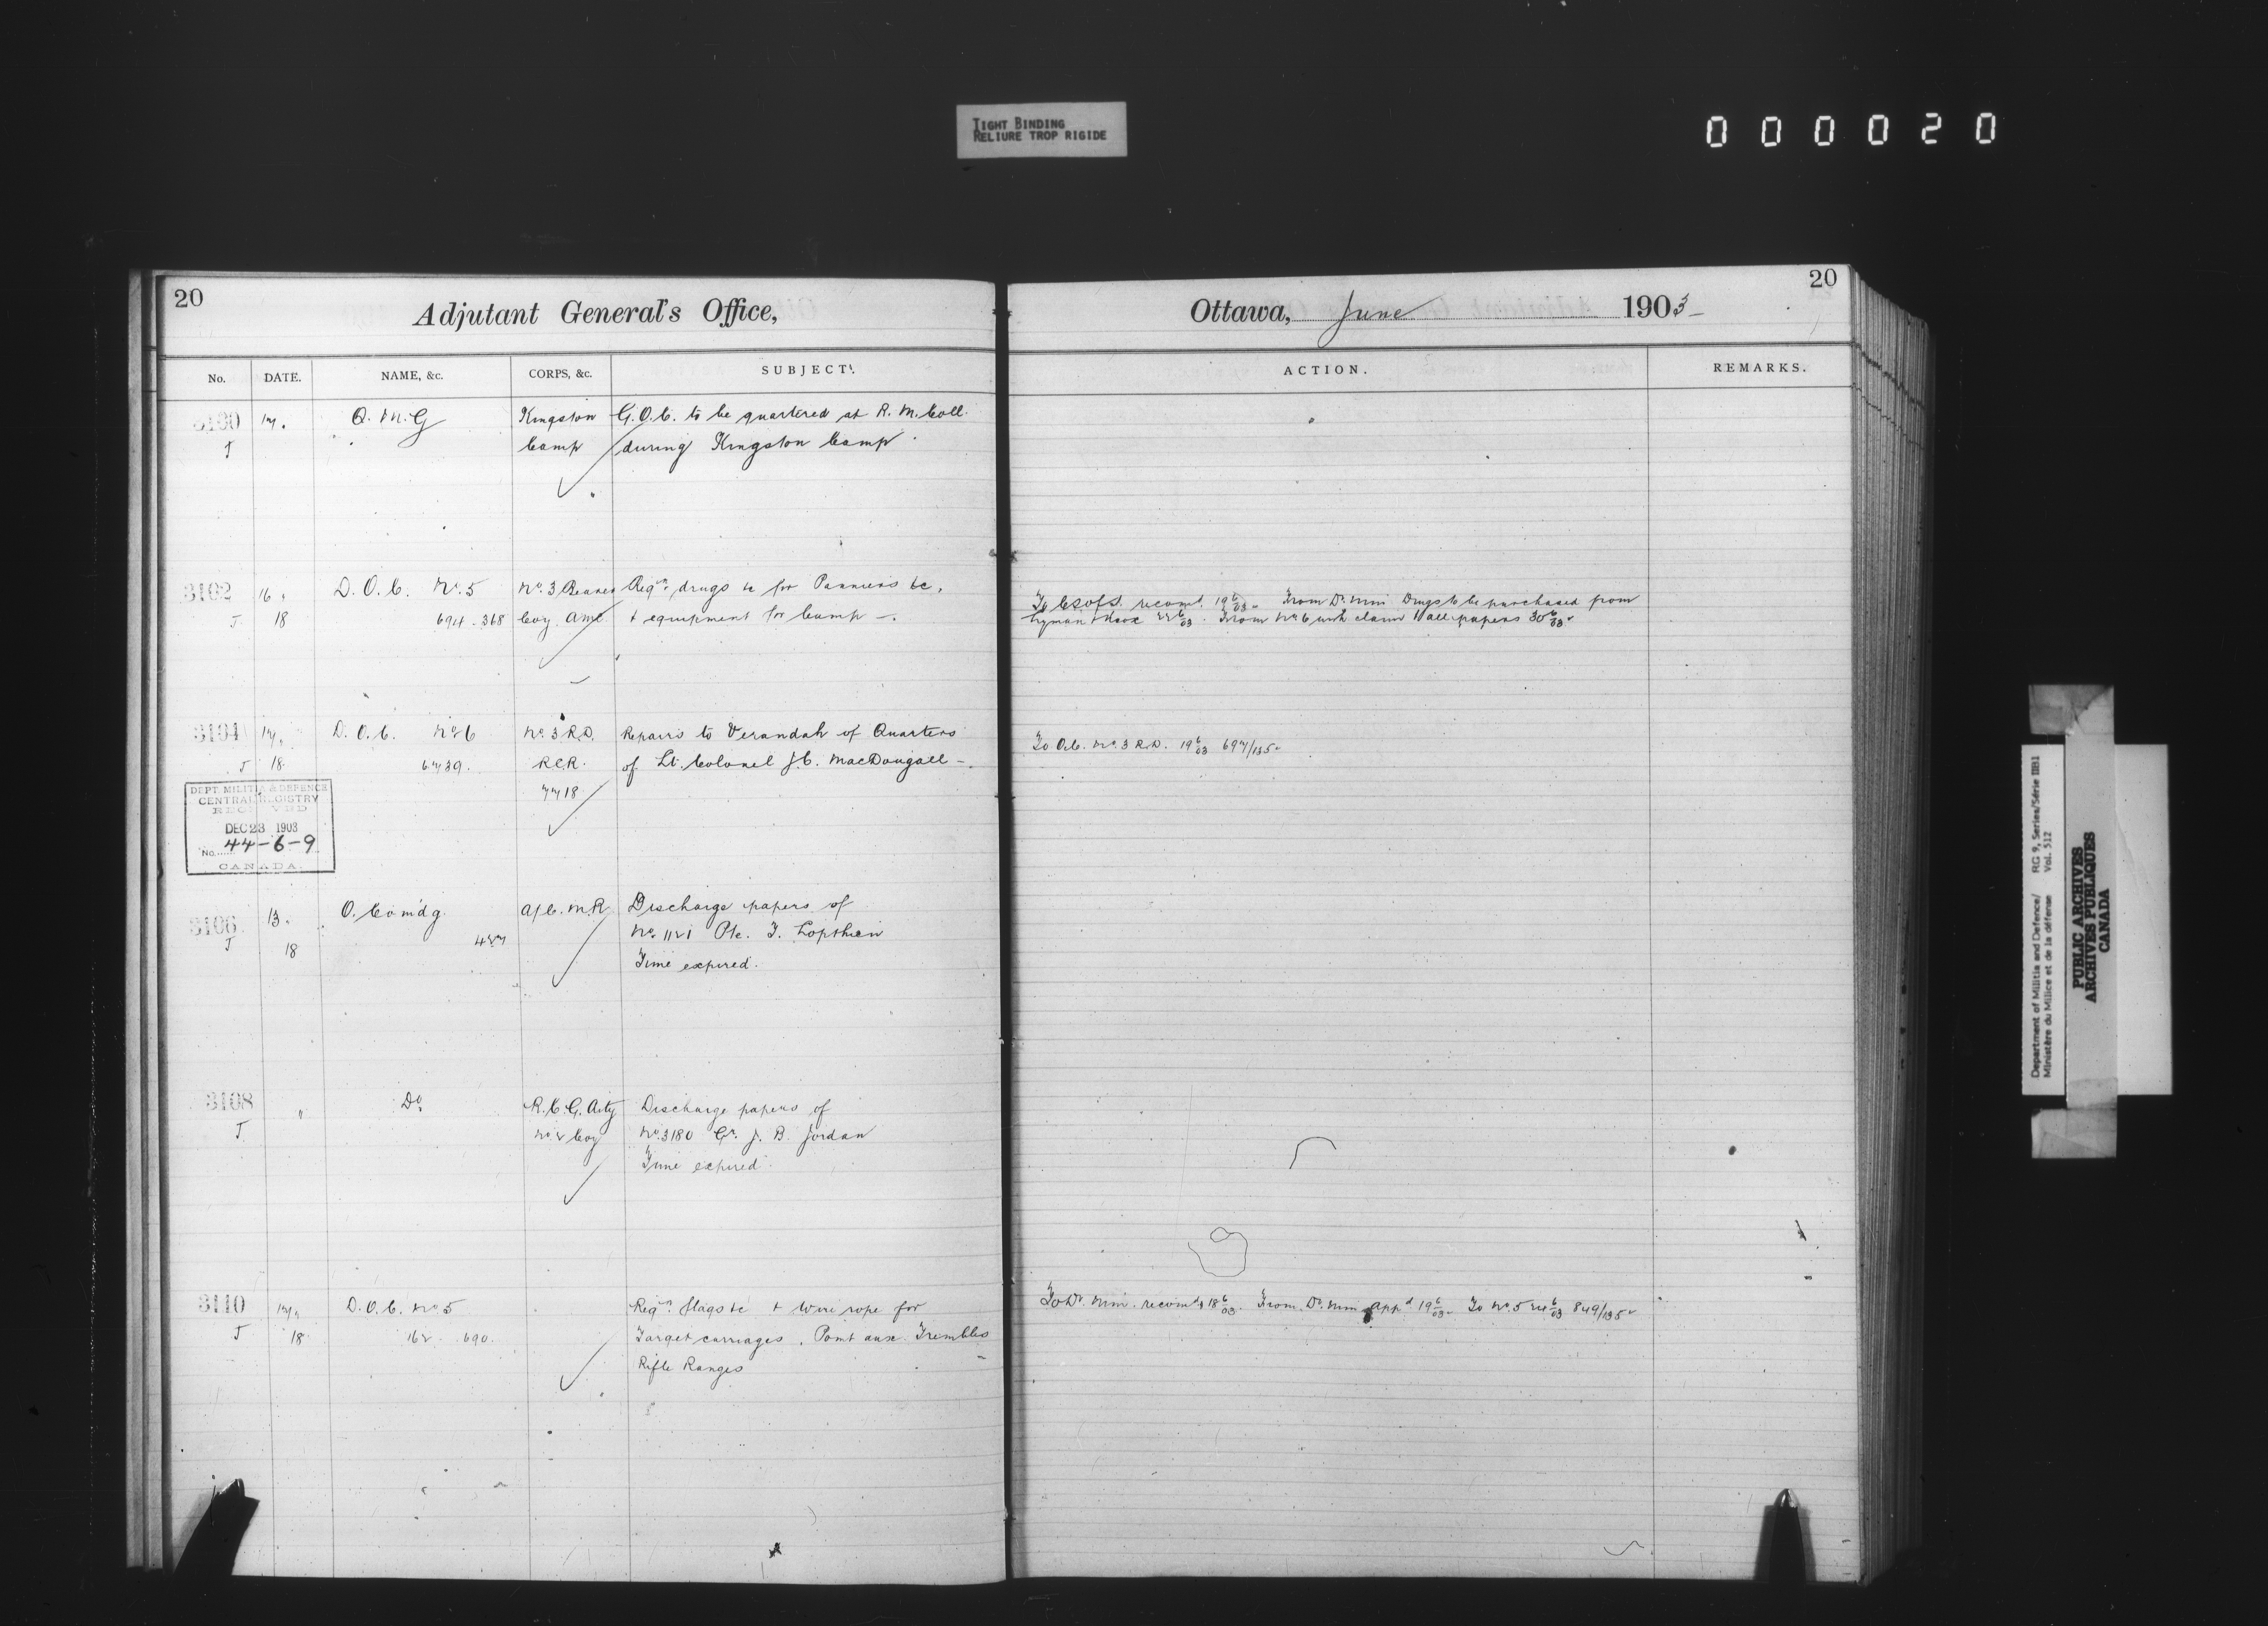 TIGHT BINDING
RELIURE TROP RIGIDE
000020
20
Adjutant General's Office,
No. DATE. NAME, &c. CORPS, &c. SUBJECT.
3100 17. Q.M.G Kingston G.O.C. to be quartered at R.M. Coll.
J Camp during Kingston Camp.
3102 16. D.O.C. No. 5 No. 3 Bearer Reqn. drugs &c for Panniers &c,
J 18 694-368 Coy. AMC. + equipment for Camp -.
3104 17. D.O.C. No 6 No. 3 R.D. Repairs to Verandah of Quarters
J 18. 6739. RCR. of Lt. Colonel J.C. MacDougall -.
7718
DEPT. MILITIA & DEFENCE
CENTRAL REGISTRY
RECEIVED
DEC 23 1903
No. 44-6-9
CANADA.
3106 13. O. Comdg. A/C.M.R Discharge papers of
J 18 427 No. 1121 Pte. T. Lopthien
Time expired.
3108 " Do. R.C.G. Arty Discharge papers of
J No. 2 Coy No. 3180 Gr. J. B. Jordan
Time expired.
3110 17. D.O.C. No. 5 Reqn. flags &c + wire rope for
J 18. 162 690. Target carriages, Point aux Trembles
Rifle Ranges
20
Ottawa, June 1903-
ACTION. REMARKS.
recomd. 19 6/03. From D. Min Drugs to be purchased from
Lyman + Knox 22 6/03. From No 6 with claim + all papers 30 6/03.
To O.C. No. 3 R.D. 19 6/03 697/135.
To D. Min. recomdg 18 6/03. From D. Min appd 19 6/03. To No. 5 24 6/03 849/135.
Department of Militia and Defence/ RG 9, Series/Série IIB1
Ministère du Milice et de la défense Vol. 512
PUBLIC ARCHIVES
ARCHIVES PUBLIQUES
CANADA